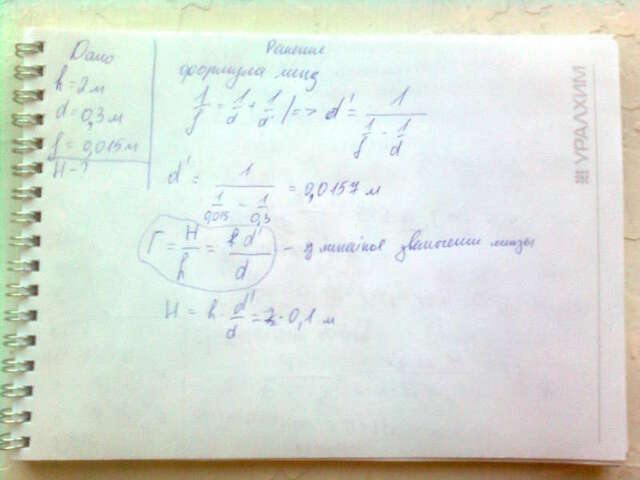 Дано
h = 2 м
d = 0,3 м
f = 0,015 м
H - ?
Решение
формула линз
1/f = 1/d + 1/d' | => d' = 1/(1/f - 1/d)
d' = 1/(1/0,015 - 1/0,3) = 0,0157 м
Г = H/h = h d'/d - линейное увеличение линзы
H = h · d'/d = 0,1 м
УРАЛХИМ